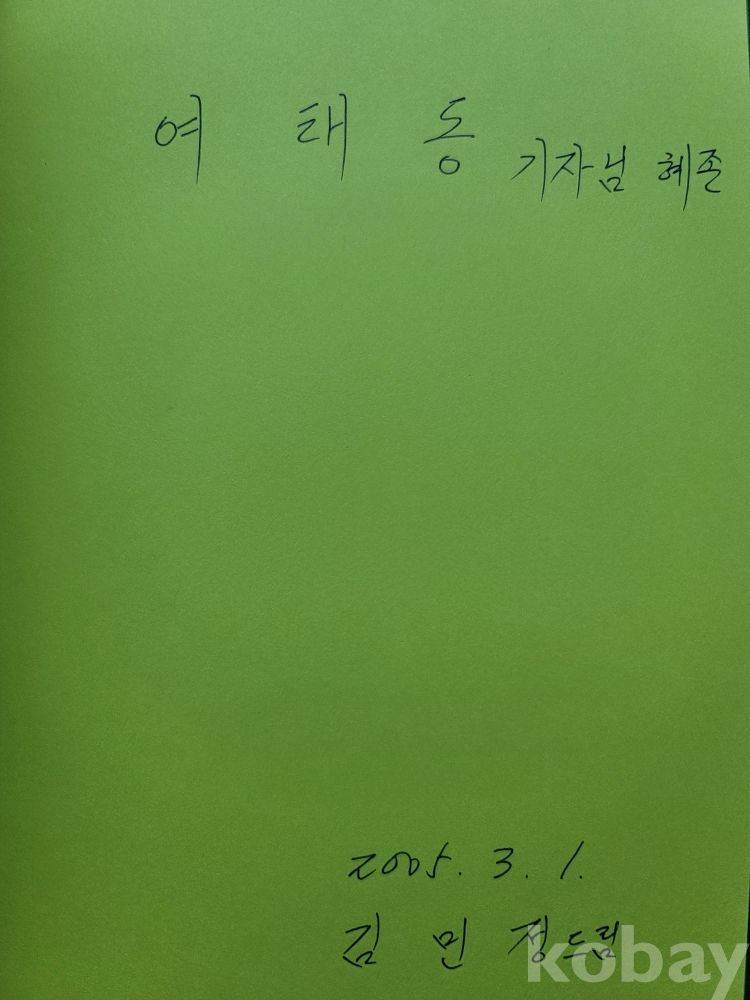 여 태 동 기자님 혜존
2005. 3. 1.
김 민 정 드림
kobay